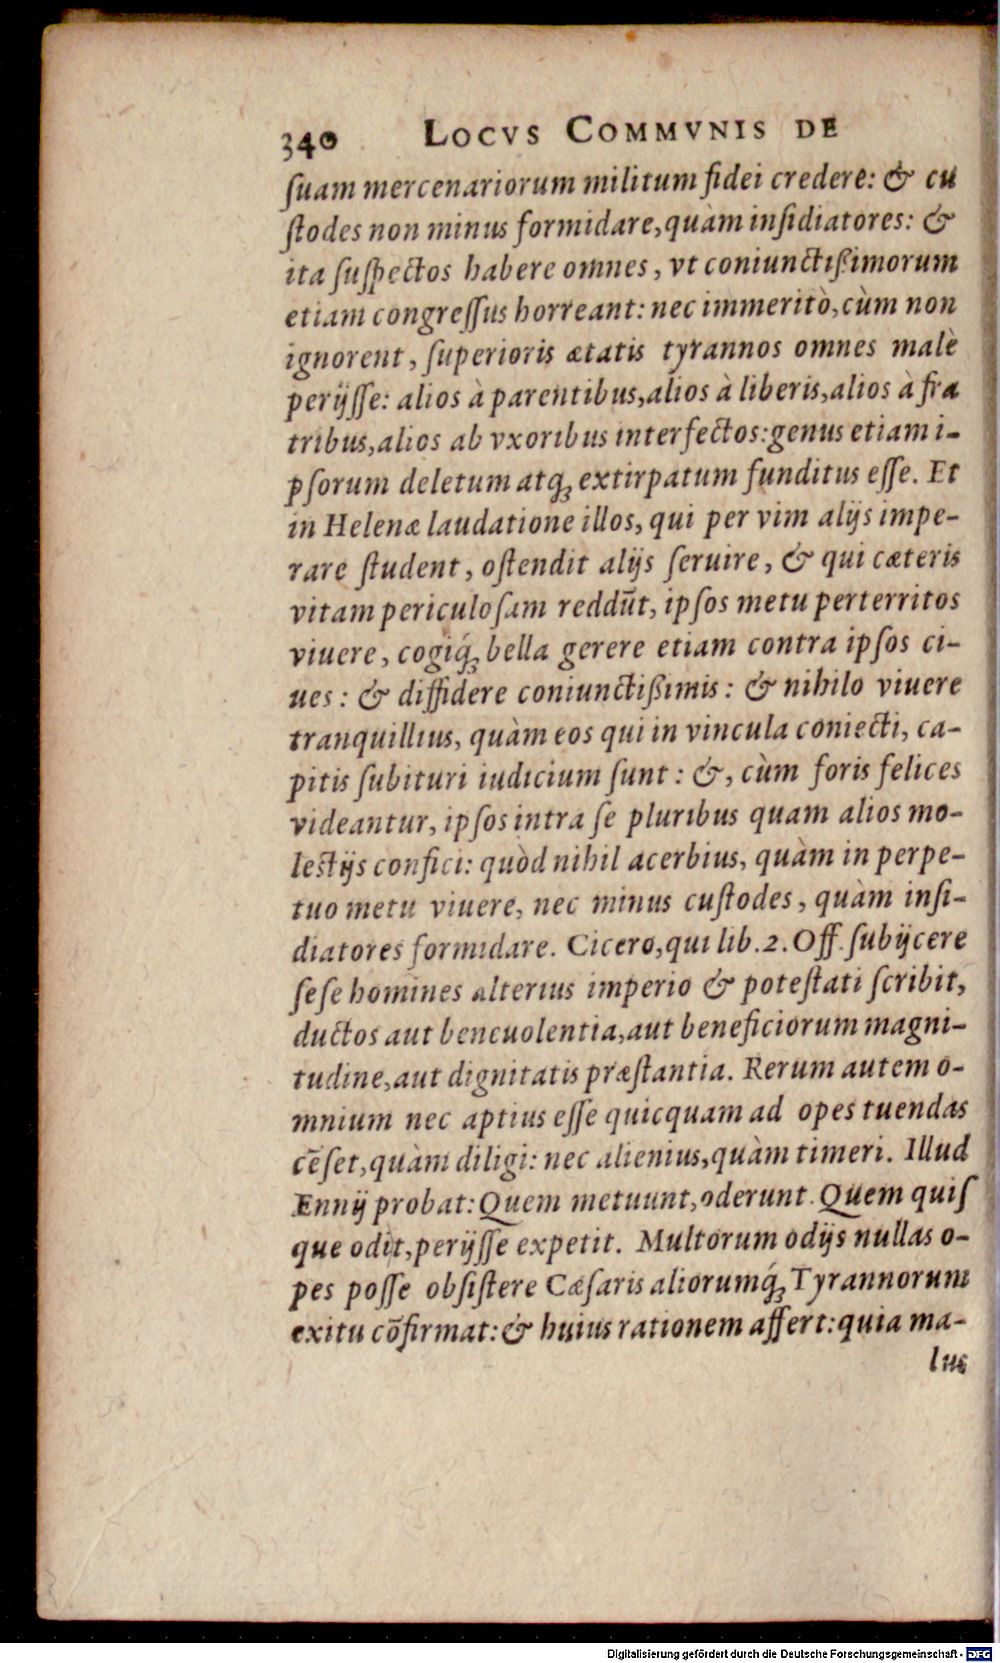 340 LOCVS COMMVNIS DE
ſuam mercenariorum militum fidei credere: & cu
ſtodes non minus formidare, quàm inſidiatores: &
ita ſuſpectos habere omnes, vt coniunctißimorum
etiam congreſſus horreant: nec immeritò, cùm non
ignorent, ſuperioris ætatis tyrannos omnes malè
perijſſe: alios à parentibus, alios à liberis, alios à fra
tribus, alios ab vxoribus interfectos: genus etiam i-
pſorum deletum atq; extirpatum funditus eſſe. Et
in Helenæ laudatione illos, qui per vim alijs impe-
rare ſtudent, oſtendit alijs ſeruire, & qui cæteris
vitam periculoſam reddūt, ipſos metu perterritos
viuere, cogiq́; bella gerere etiam contra ipſos ci-
ues: & diffidere coniunctißimis: & nihilo viuere
tranquillius, quàm eos qui in vincula coniecti, ca-
pitis ſubituri iudicium ſunt: &, cùm foris felices
videantur, ipſos intra ſe pluribus quam alios mo-
leſtijs confici: quòd nihil acerbius, quàm in perpe-
tuo metu viuere, nec minus cuſtodes, quàm inſi-
diatores formidare. Cicero, qui lib. 2. Off. ſubijcere
ſeſe homines alterius imperio & poteſtati ſcribit,
ductos aut beneuolentia, aut beneficiorum magni-
tudine, aut dignitatis præſtantia. Rerum autem o-
mnium nec aptius eſſe quicquam ad opes tuendas
cēſet, quàm diligi: nec alienius, quàm timeri. Illud
Ennij probat: Quem metuunt, oderunt. Quem quiſ
que odit, perijſſe expetit. Multorum odijs nullas o-
pes poſſe obſiſtere Cæſaris aliorumq́; Tyrannorum
exitu cōfirmat: & huius rationem affert: quia ma-
lus
Digitalisierung gefördert durch die Deutsche Forschungsgemeinschaft - DFG